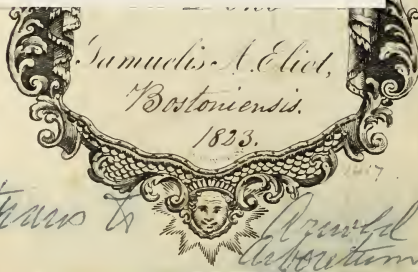 Samuelis A. Eliot,
Bostoniensis.
1823.
trans to Arnold
Arboretum